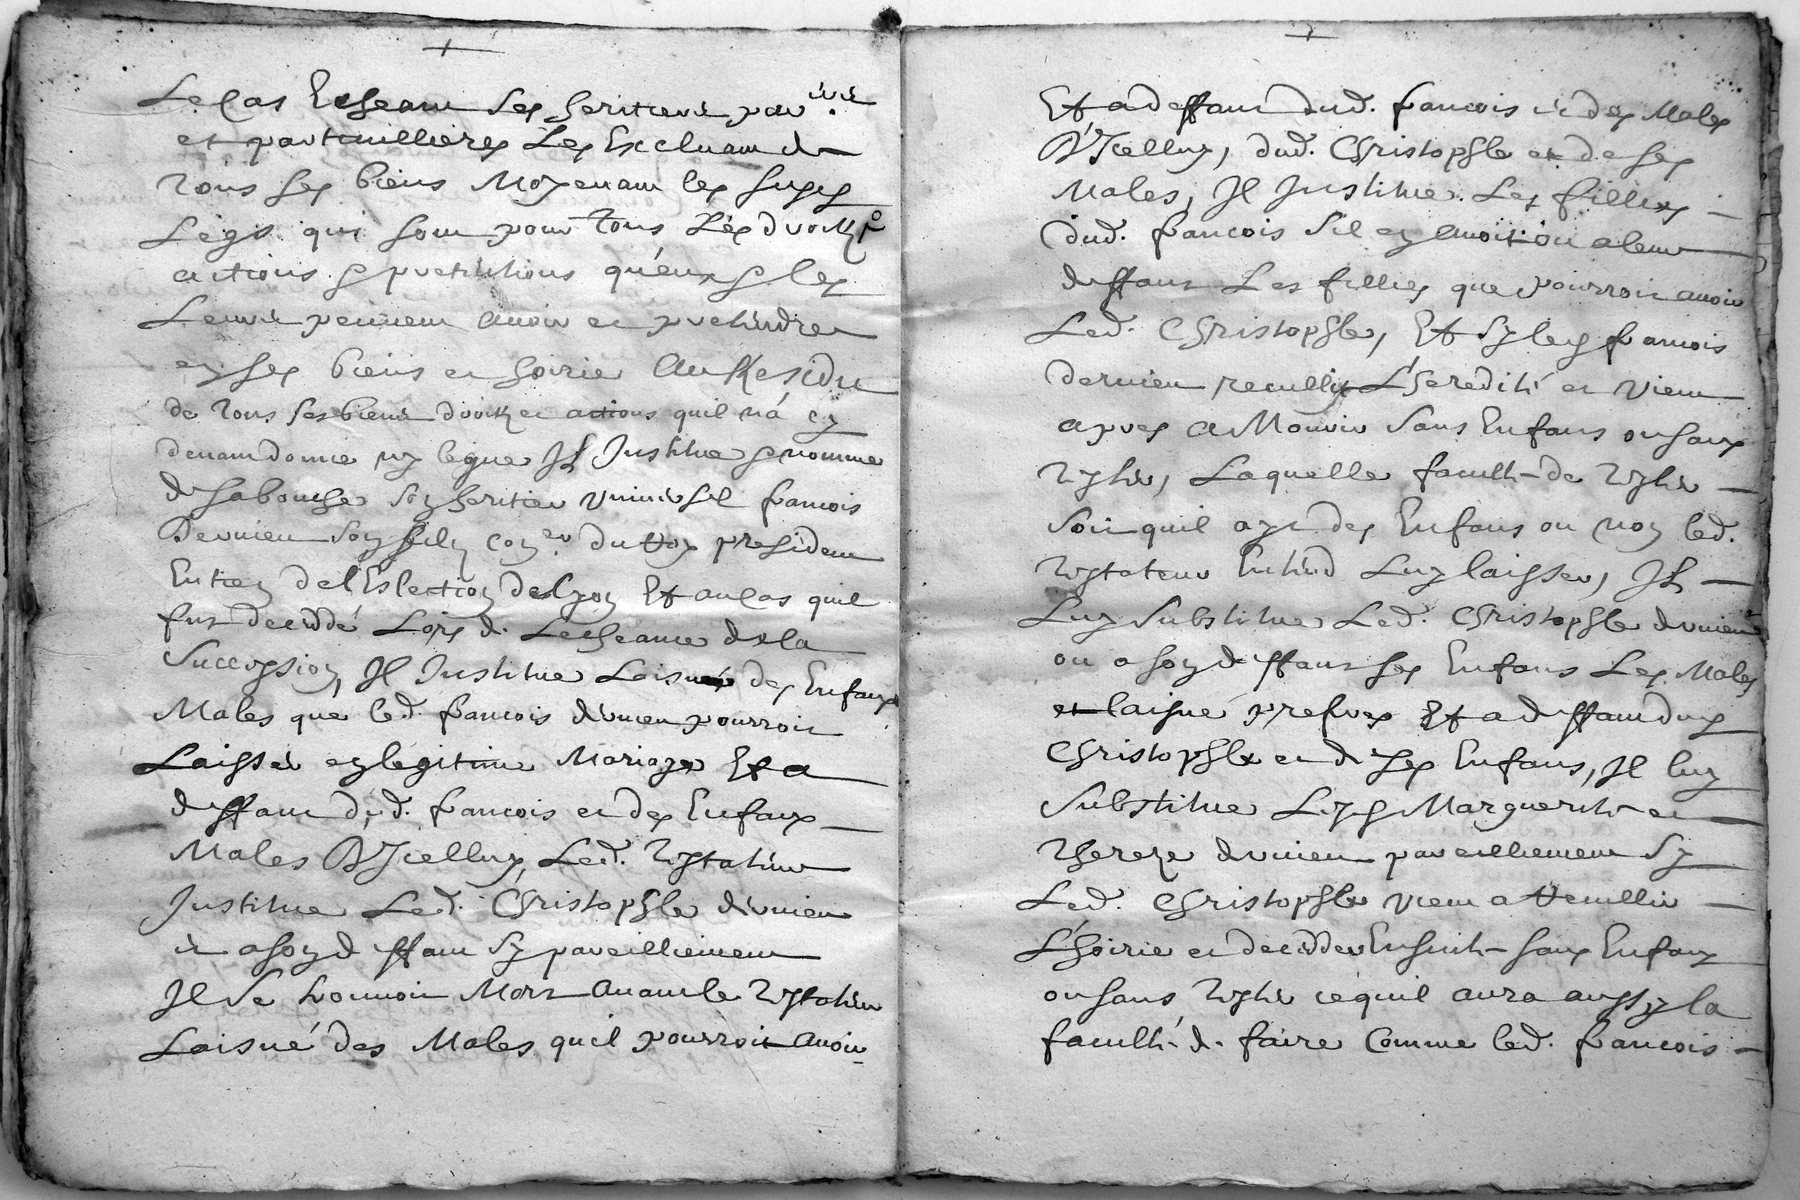 Le Cas Escheant Ses heritiers par.ers
et particullieres Les Excluant de
Tous ses biens Moyenant les susd
Légs qui sont pour Tous Les droitz
actions & pretentions qu'eux & les
Leurs peuvent avoir et pretendre
en ses biens et hoirie Au Residu
de Tous ses biens droitz et actions quil n'á cy
devant donné ny legué Il Institue & nomme
de sa bouche son heritier universel francois
Dervieu son filz con.er du Roy president
En lien de l'Eslection de Lyon Et au Cas quil
fut deceddé Lors de Lescheance de la
Succession, Il Institue Laisné des Enfans
Males que led. francois dervieu pourroit
Laisser en legitime Mariage Et a
deffaut dud. francois et des Enfans
Males D'Icelluy, Led. Testateur
Institue Led. Christophle dervieu
et a son deffaut Sy pareilliement
Il Se trouvoit Mort Avant le Testateur
Laisné des Males quil pourroit avoir
Et a deffaut dud. francois et des Males
D'Icelluy, dud. Christophle et de ses
Males, Il Institue Les filles
dud. francois Sil en avoit ou a leur
deffaut Les filles que pourroit avoir
Led. Christophle, Et Sy led francois
dervieu recullit L'heredité et vient
apres a Mourir Sans Enfans ou sans
Tester, Laquelle faculté de Tester
Soit quil ayt des Enfans ou non led.
Testateur Entend Luy laisser, Il
Luy Substitue Led. Christophle dervieu
ou a son deffaut ses Enfans Les Males
et laisné preferez Et a deffaut dud
Christophle et de Ses Enfans, Il luy
Substitue Lesd Marguerite et
Thereze dervieu pareilliement Sy
Led. Christophle vient a Recullir
L'hoirie et decedder Ensuite sans Enfans
ou sans Tester ce quil aura aussy la
faculté de faire Comme led. francois